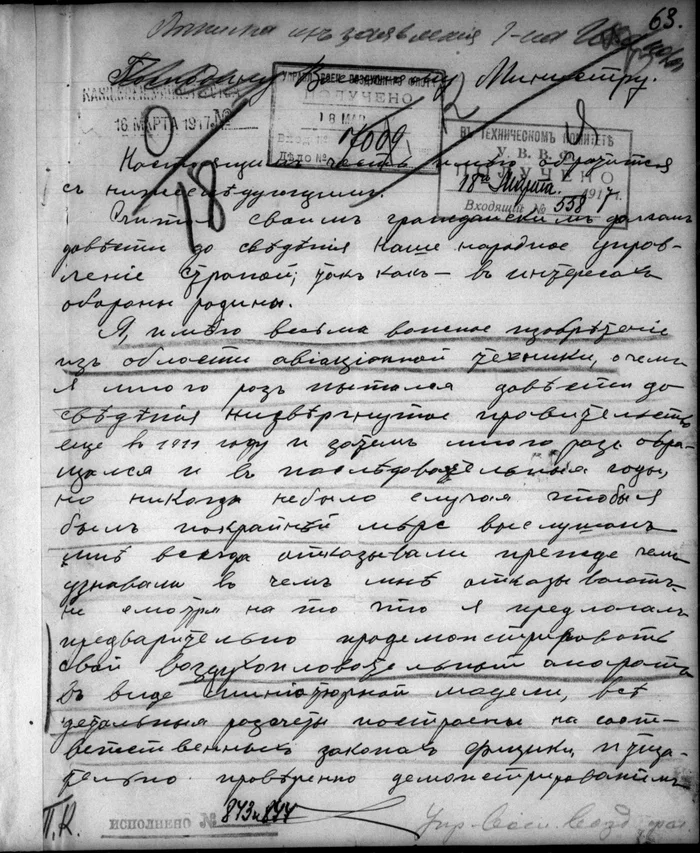 63.
Выписка изъ заявленія г-на
Господину Военному Министру.
УПРАВЛЕНІЕ ВОЗДУШНАГО ФЛОТА
ПОЛУЧЕНО
18 МАР
Вход. №
Дѣло №
17009
КАНЦ. ВОЕН. МИНИСТЕРСТВА
16 МАРТА 1917 №
ВЪ ТЕХНИЧЕСКОМЪ КОМИТЕТѢ
У. В. В. Ф.
ПОЛУЧЕНО
18го Марта 1917 г.
Входящій № 558
18
Настоящимъ честь имѣю обратится
съ нижеслѣдующимъ.
Считая своимъ гражданскимъ долгомъ
довѣсти до свѣдѣнія наше народное управ-
леніе страной, такъ какъ — въ интересахъ
обороны родины.
Я, имѣю весьма важное изобрѣтеніе
изъ области авіаціонной техники, о чемъ
я много разъ пытался довѣсти до
свѣдѣнія низвѣргнутое правительство
еще въ 1911 году и затѣмъ много разъ обра-
щался и въ послѣдовательныя годы,
но никогда небыло случая чтобы я
былъ покрайнѣй мѣрѣ выслушанъ
мнѣ всегда отказывали прежде чемъ
узнавали въ чемъ мнѣ отказываютъ
не смотря на то что я предлогалъ
предварительно продемонстрировать
свой воздухоплавательный апаратъ
въ виде миніатюрной модели, всѣ
детальныя розсчеты построены на соот-
вѣтственныхъ законахъ физики и тща-
тельно провѣренно демонстрированіемъ
П.К.
ИСПОЛНЕНО № 873 и 877
Упр-Воен. Возд.